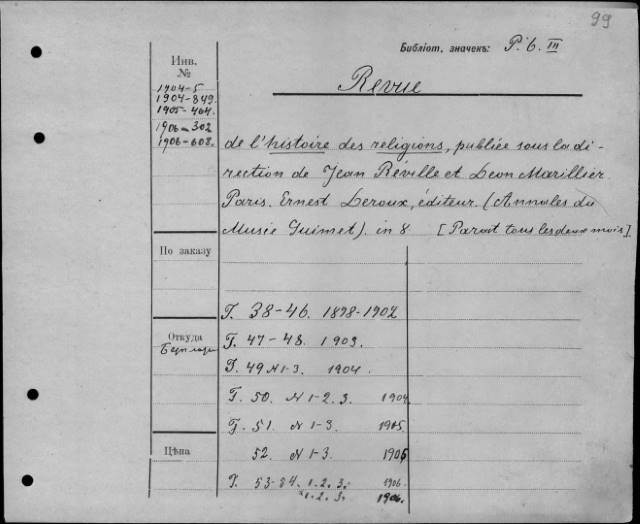 99
Библіот. значекъ: P. b. III
Инв.
№
1904-5
1904-849.
1905-464.
1906-302
1906-608.
Revue
de l'histoire des religions, publiée sous la di-
rection de Jean Réville et Leon Marillier.
Paris. Ernest Leroux, éditeur. (Annales du
Musée Guimet). in 8 [Parait tous les deux mois].
По заказу
Откуда
Цѣна
T. 38-46. 1898-1902
T. 47-48. 1903.
T. 49 N 1-3. 1904.
T. 50. N 1-2. 3. 1904
T. 51. N 1-3. 1905.
52. N 1-3. 1905
T. 53-54. 1. 2. 3. 1906
1. 2. 3. 1906.